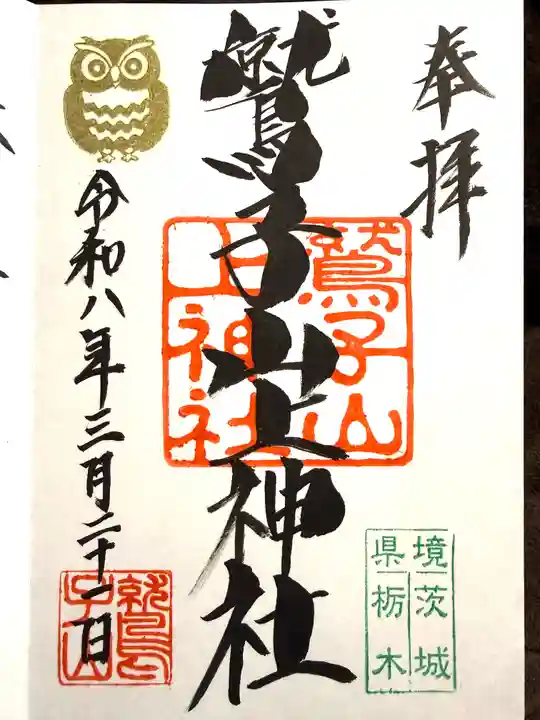 奉拝
鷲子山上神社
鷲子山
上神社
境茨城
県栃木
令和八年三月二十一日
鷲
子山